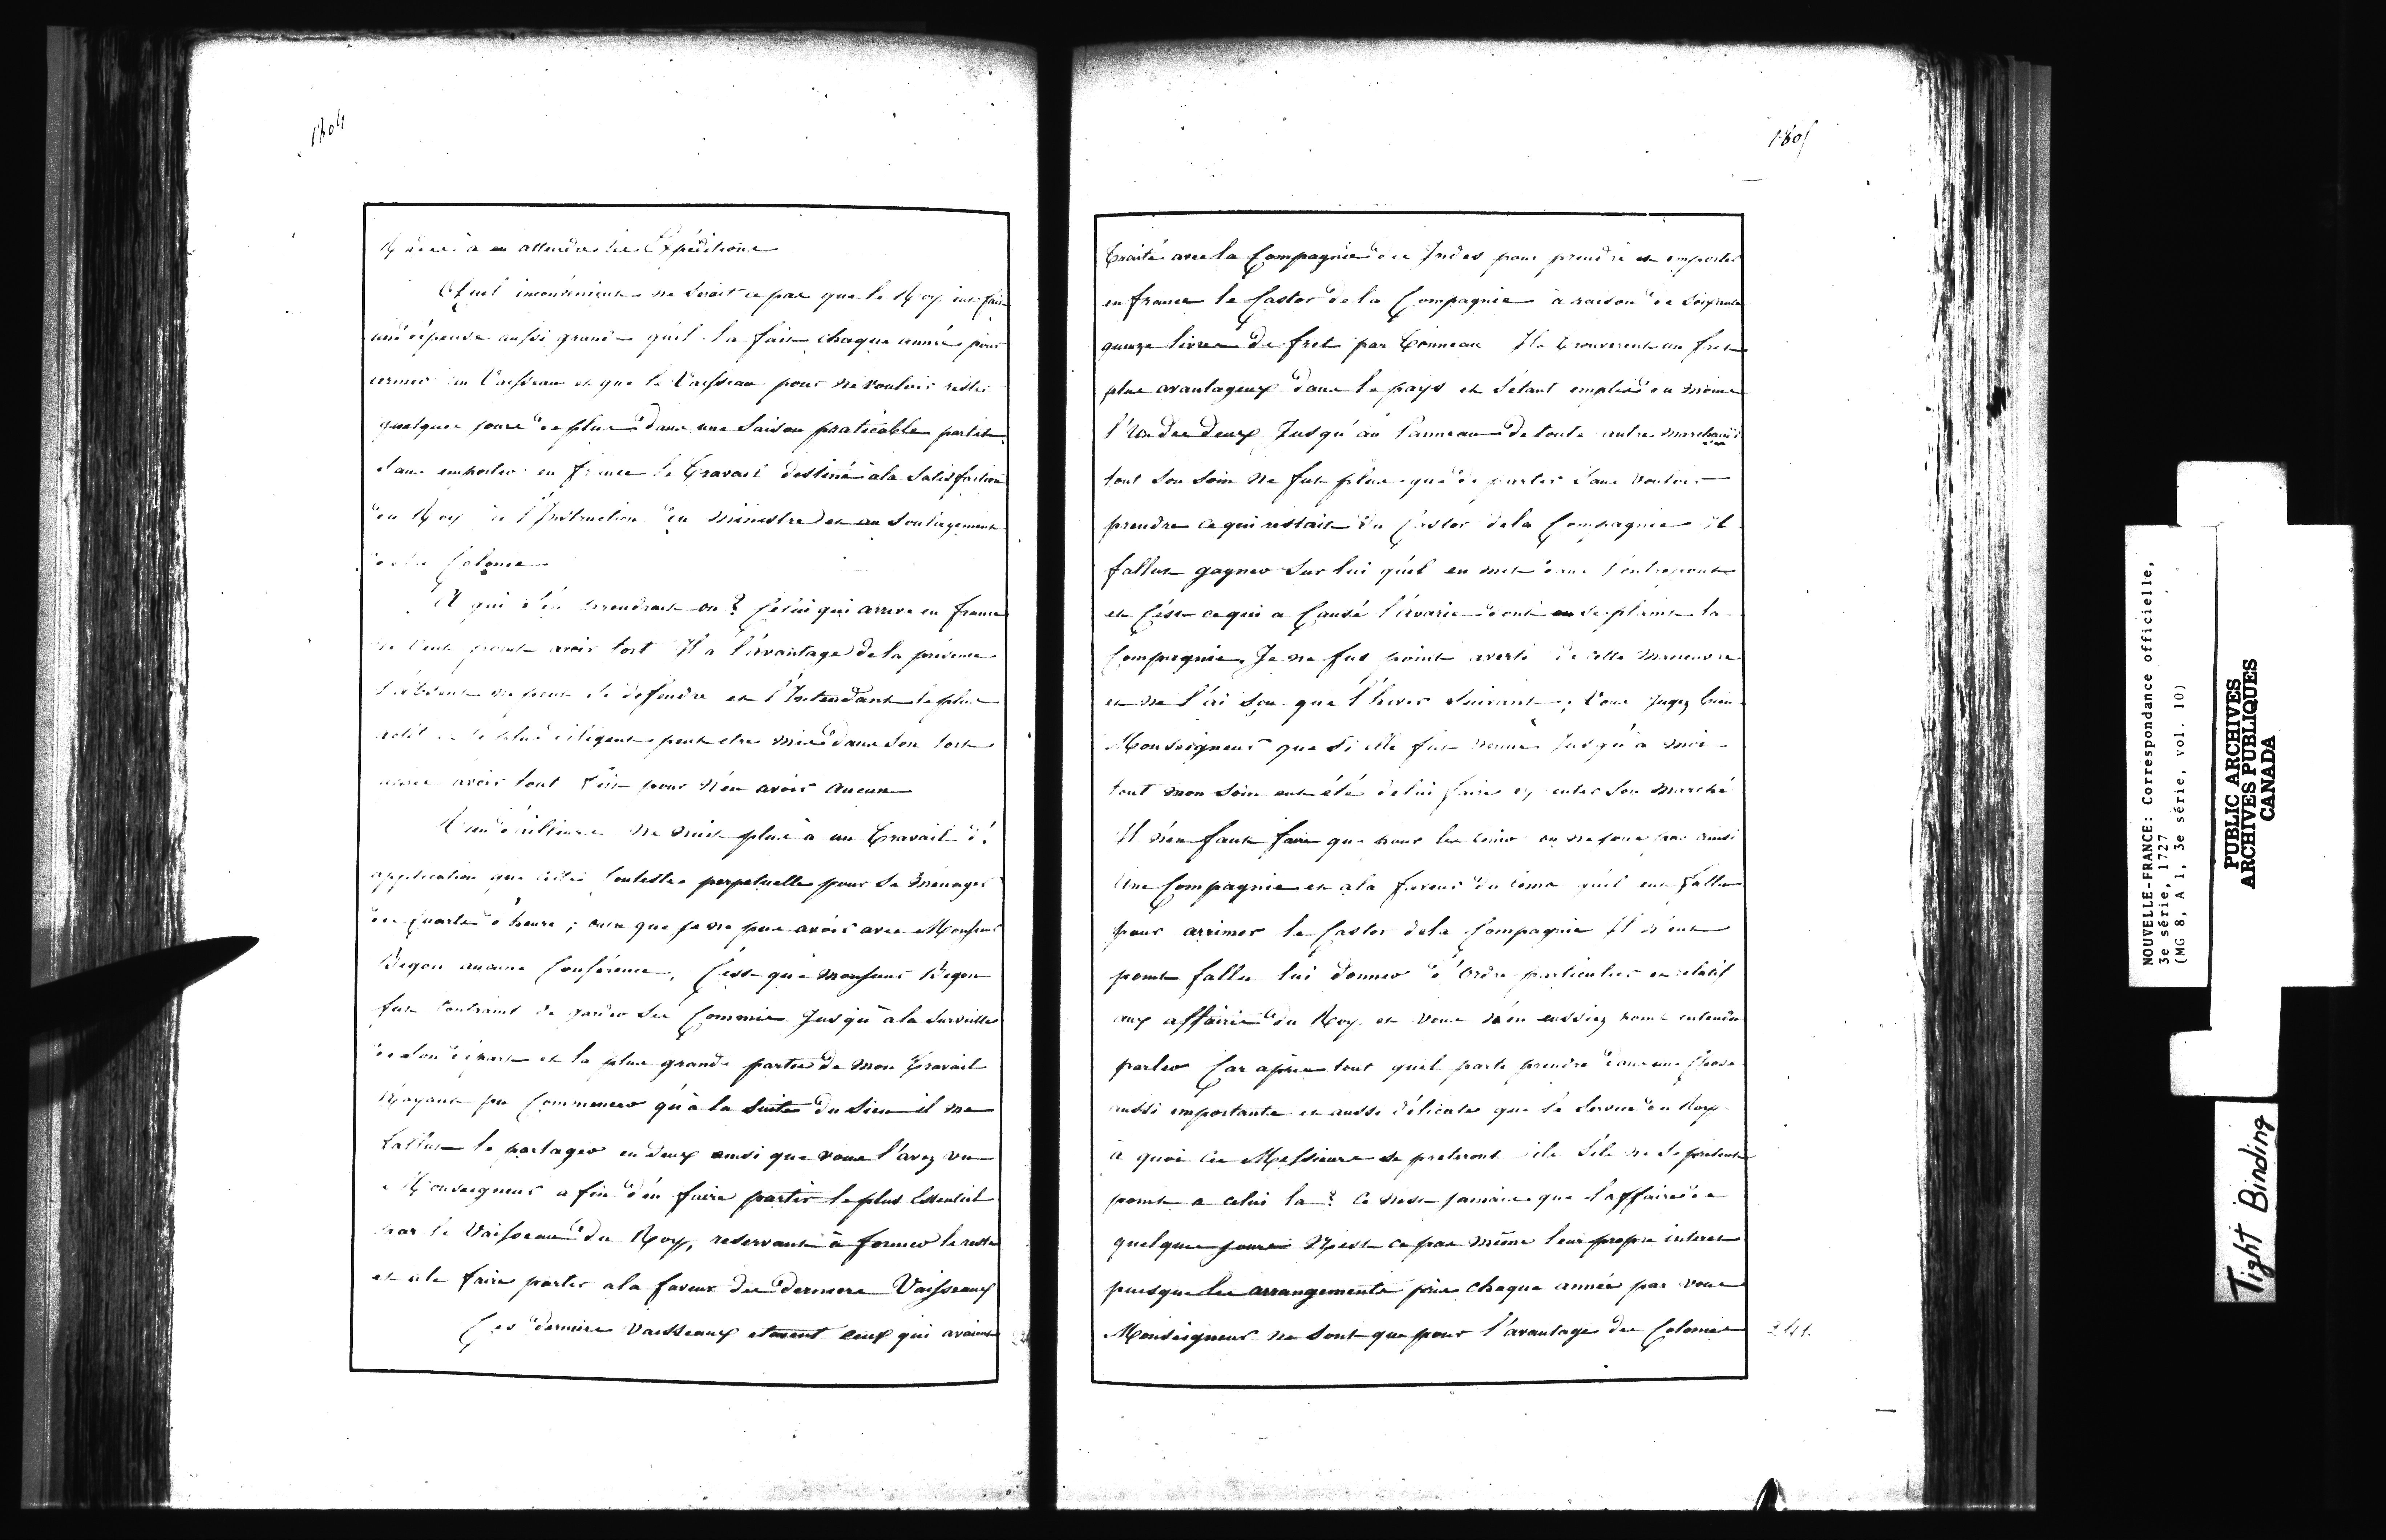 1804
Roy à en attendre les Expéditions
Quel inconvenient ne serait ce pas que le Roy eut fait
une dépense aussi grande qu'il la fait chaque année pour
armer un Vaisseau et que le Vaisseau pour ne vouloir rester
quelques jours de plus dans une saison praticable partit
sans emporter en france le travail destiné a la satisfaction
du Roy de l'Instruction du ministre et au soulagement
de la Colonie
A qui s'en prendrait on? Celui qui arrive en france
ne veut point avoir tort Il a l'avantage de la présence
l'absent ne peut se defendre et l'Intendant le plus
actif et le plus diligent peut etre mis dans son tort
avoir tout fait pour n'en avoir aucun
Rien d'ailleurs ne nuit plus à un travail d'
application que cette contestes perpetuelle pour se menager
des quarts d'heure; outre que je ne pus avoir avec Monsieur
Begon aucune Conférence, C'est que Monsieur Begon
fut contraint de garder ses Commis Jusqu'à la surveille
de son départ et la plus grande partie de mon travail
N'ayant pu Commencer qu'à la suite du sien il me
fallut le partager en deux ainsi que vous l'avez vu
Monseigneur afin d'en faire partir le plus Essentiel
par le Vaisseau du Roy, reservant à former le reste
et a le faire partir a la faveur des derniers Vaisseaux
Ces derniers vaisseaux etoient ceux qui avaient
1805
traité avec la Compagnie des Indes pour prendre et emporter
en france le Castor de la Compagnie à raison de soixante
quinze livres de fret par tonneau Ils trouverent un fret
plus avantageux dans le pays et s'étant emplis ou même
l'un des deux Jusqu'au Panneau de toute autre marchandise
tout son soin ne fut plus que de partir sans vouloir
prendre ce qui restait du Castor de la Compagnie il
fallut gagner sur lui qu'il en mit dans l'entrepont
et C'est ce qui a Causé l'avarie dont on se plaint la
Compagnie. Je ne fus point averti de cette manœuvre
et ne l'ai sçu que l'hiver suivant; Vous Jugez bien
Monseigneur que si elle fut venue Jusqu'à moi
tout mon soin eut été de lui faire executer son marché
Il n'en faut faire que pour les tenir on ne joue pas ainsi
Une Compagnie et a la faveur du tems qu'il eut fallu
pour arrimer le Castor de la Compagnie Il n'eut
point fallu lui donner d'Ordre particulier et relatif
aux affaires du Roy et vous n'en eussiez point entendu
parler Car après tout quel parti prendre dans une Chose
aussi importante et aussi délicate que le service du Roy
à quoi ces Messieurs se preteront ils s'ils ne se pretent
point a celui la? Ce n'est jamais que l'affaire de
quelques jours N'est ce pas même leur propre interet
puisque les arrangements pris chaque année par vous
Monseigneur ne sont que pour l'avantage des Colonies
241.
NOUVELLE-FRANCE: Correspondance officielle,
3e série, 1727
(MG 8, A 1, 3e série, vol. 10)
PUBLIC ARCHIVES
ARCHIVES PUBLIQUES
CANADA
Tight Binding